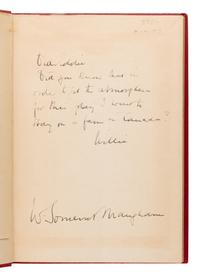 Dear Eddie
Did you know that in
order to get the atmosphere
for this play I went to
stay on a farm in Canada?
Willie
W. Somerset Maugham